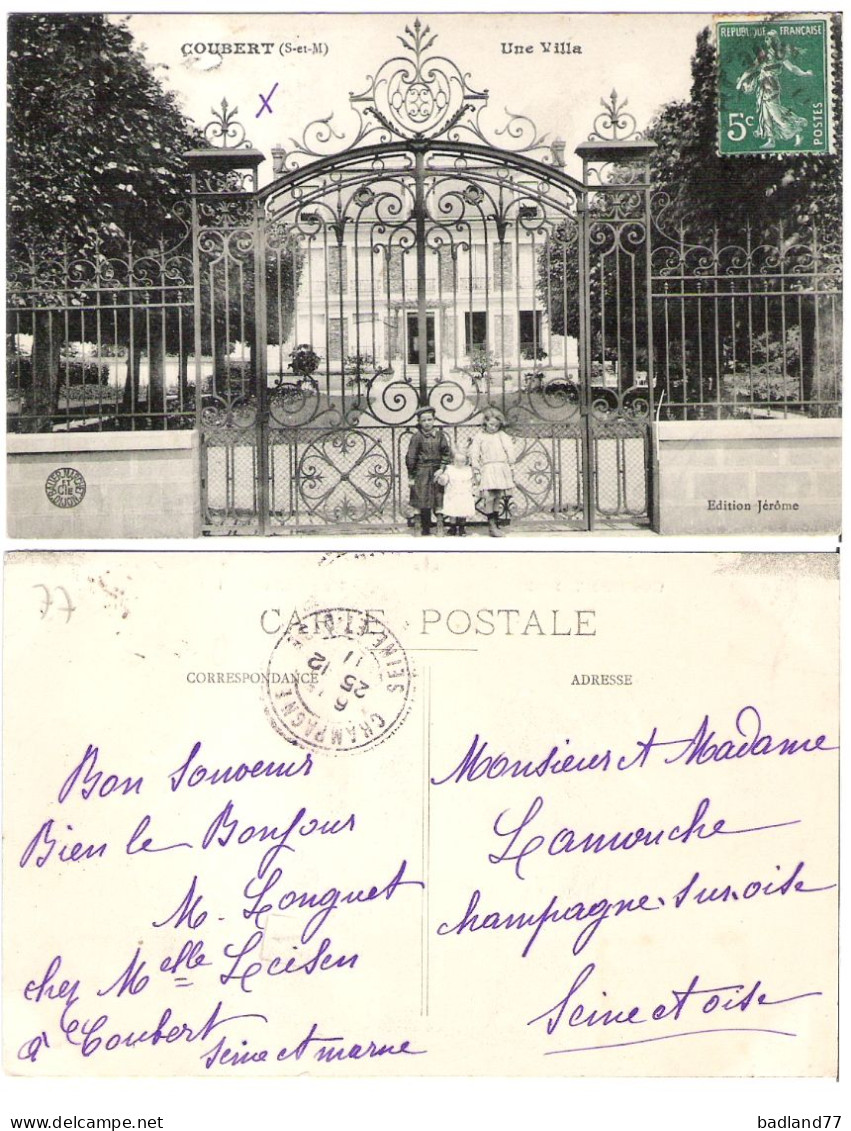 COUBERT (S-et-M) Une Villa
REPUBLIQUE FRANÇAISE
5c
POSTES
Edition Jérôme
77
CARTE POSTALE
CORRESPONDANCE
ADRESSE
CHAMPAGNE
SEINE-ET-OISE
25 12
11
Bon Souvenir
Bien le Bonjour
M. Longuet
chez Melle
à Coubert
Seine et marne
Monsieur et Madame
Lamouche
champagne. sur. oise
Seine et oise
badland77
delcampe.net